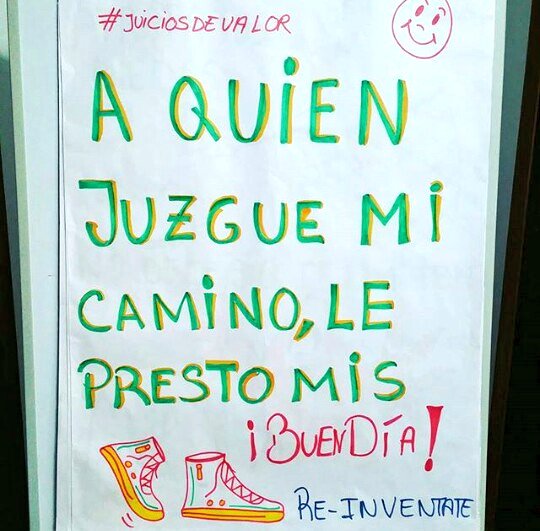 #JUICIOSDEVALOR
A QUIEN
JUZGUE MI
CAMINO, LE
PRESTO MIS
¡BUEN DÍA!
RE-INVENTATE